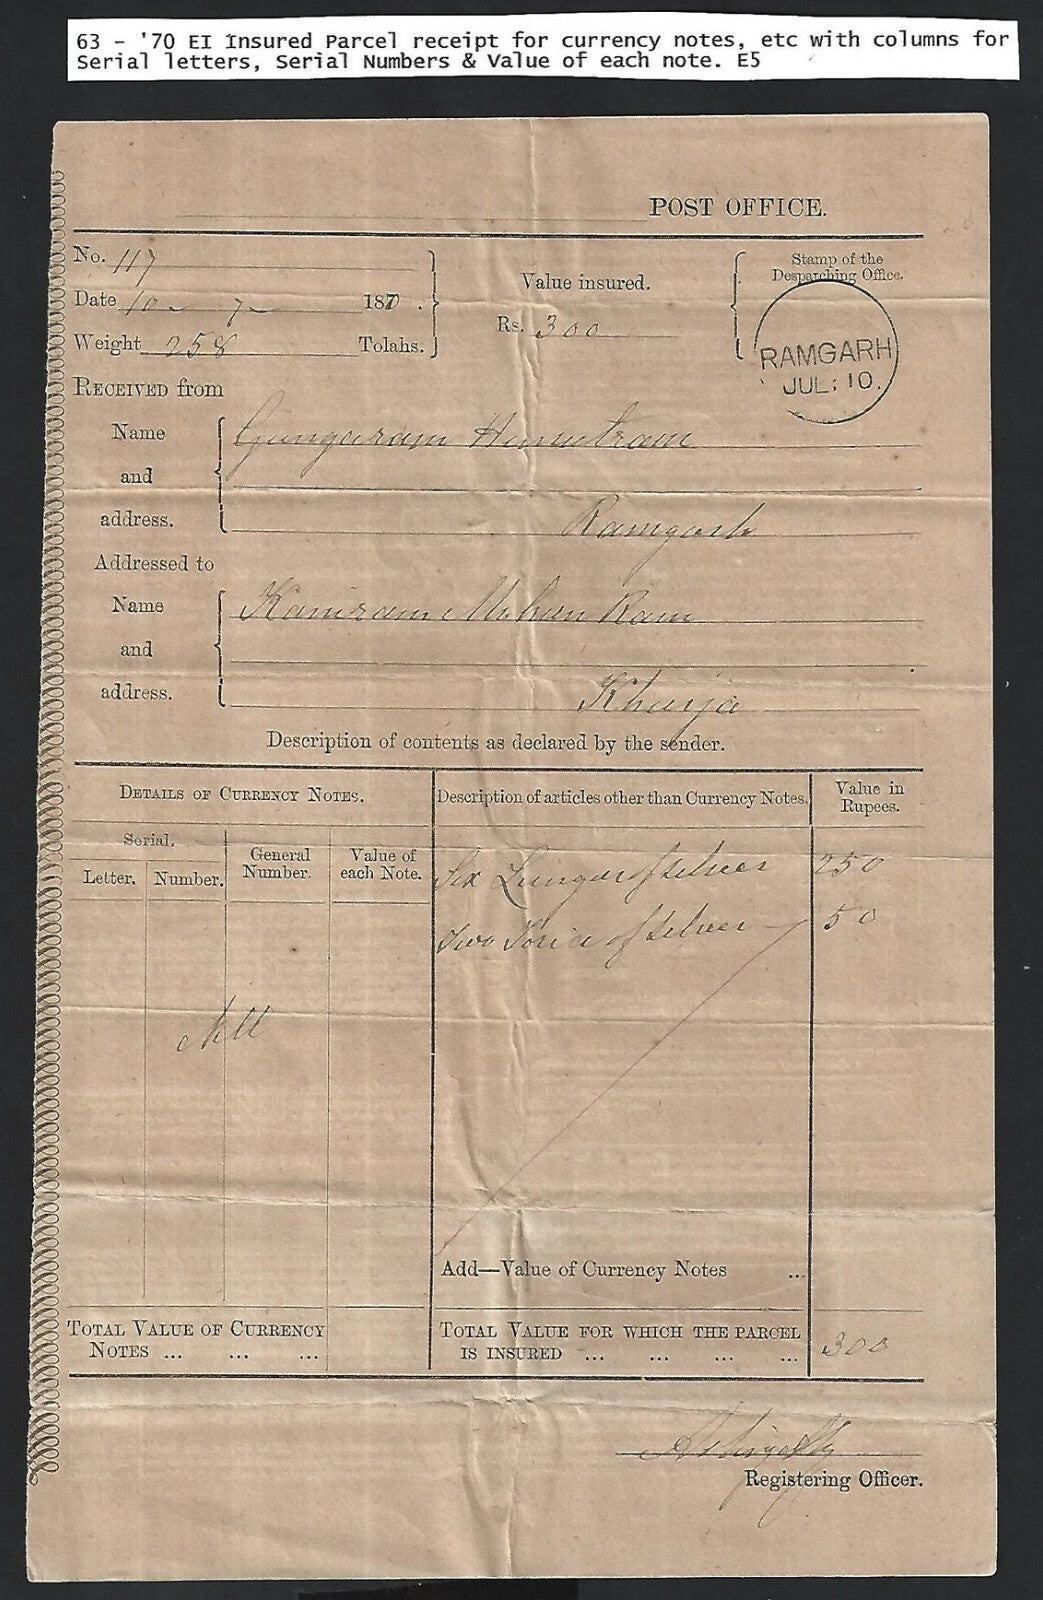 63 - '70 EI Insured Parcel receipt for currency notes, etc with columns for
Serial letters, Serial Numbers & Value of each note. E5
POST OFFICE.
No. 117
Date 10 - 7 - 1870.
Weight 258 Tolahs.
Value insured.
Rs. 300
Stamp of the
Despatching Office.
RAMGARH
JUL: 10.
RECEIVED from
Name
and
address.
Gungaram
Ramgarh
Addressed to
Name
and
address.
Kaniram Mohun Ram
Khurja
Description of contents as declared by the sender.
DETAILS OF CURRENCY NOTES.
Description of articles other than Currency Notes.
Value in
Rupees.
Serial.
Letter.
Number.
General
Number.
Value of
each Note.
Six of Silver 250
Two of Silver 50
Nil
Add—Value of Currency Notes ...
TOTAL VALUE OF CURRENCY
NOTES ... ... ...
TOTAL VALUE FOR WHICH THE PARCEL
IS INSURED ... ... ... ...
300
Registering Officer.